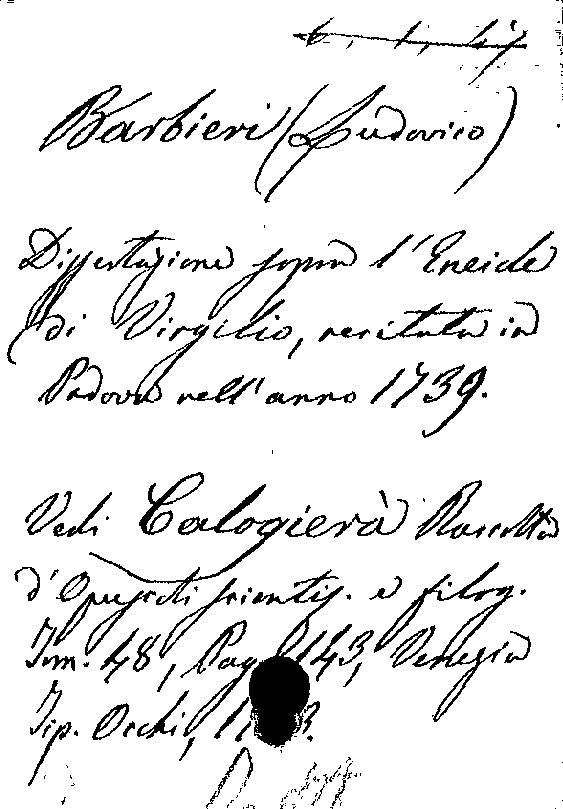 6. 1. 47
Barbieri (Ludovico)
Dissertazione sopra l'Eneide
di Virgilio, recitata in
Padova nell'anno 1739.
Vedi Calogierà Raccolta
d'Opuscoli scientif. e filog.
Tom. 48, Pag. 143, Venezia
Tip. Occhi,